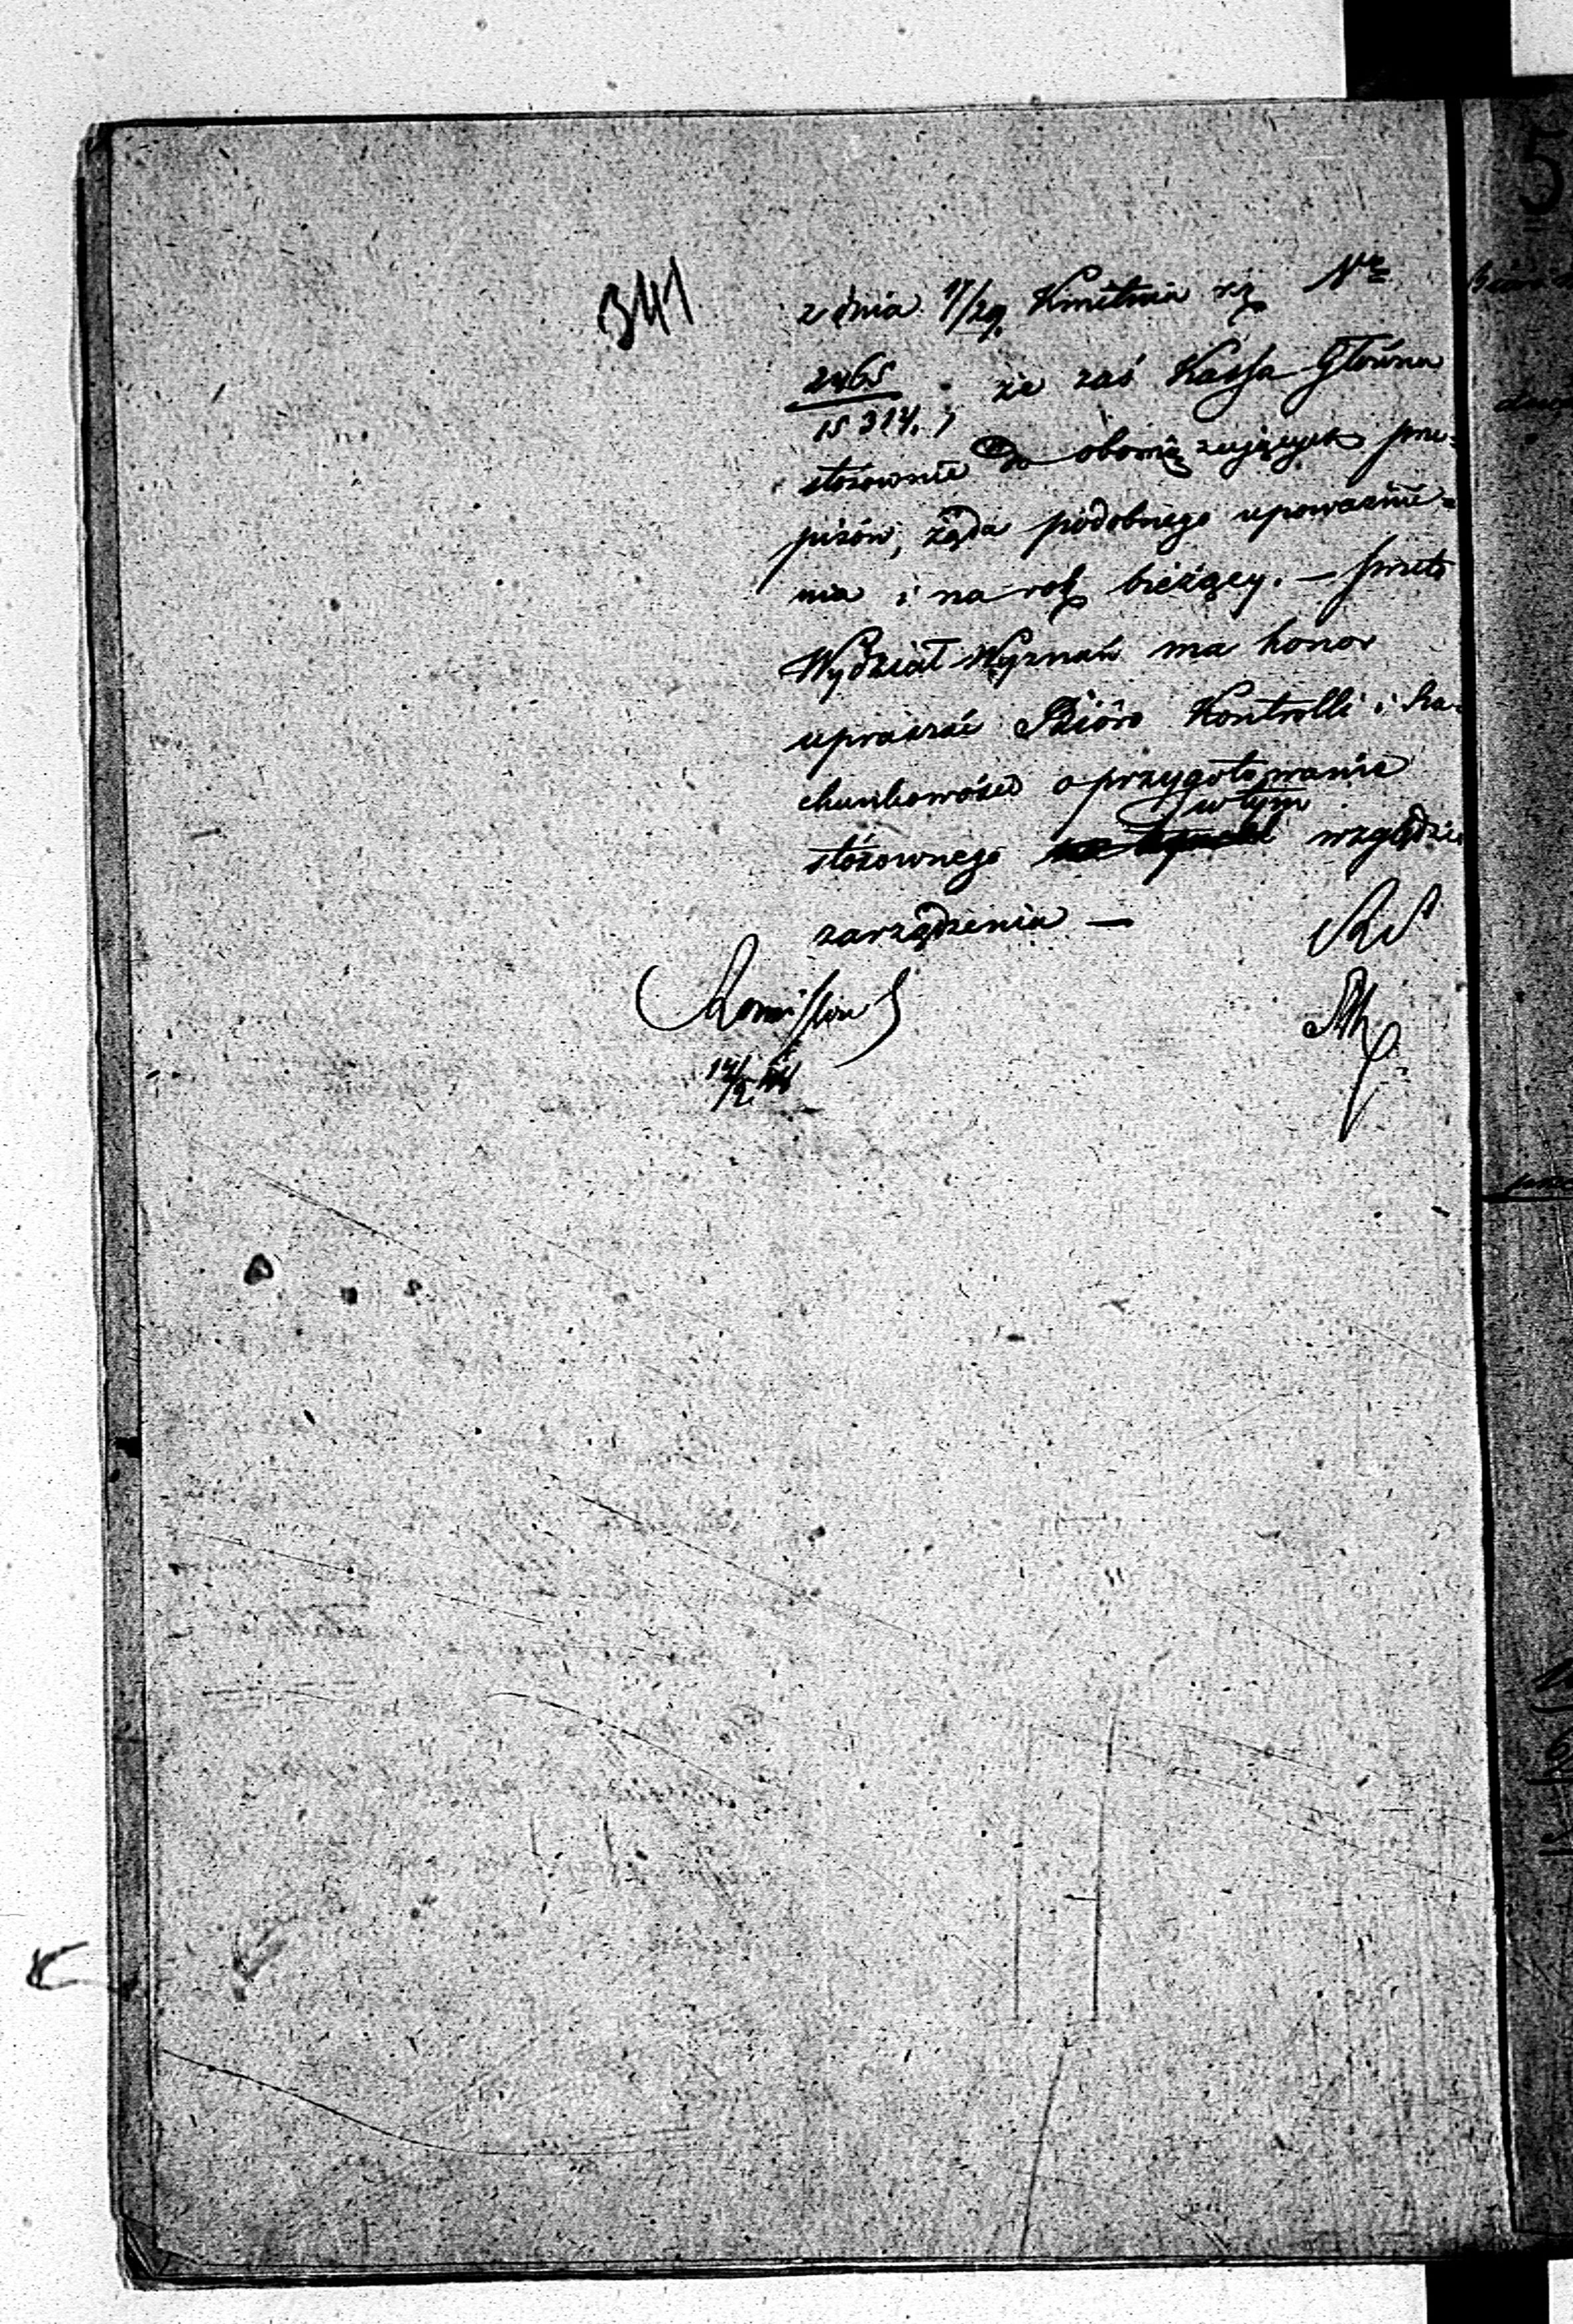 341
z dnia 17/29 Kwietnia rb Nr
2465
15314. ; że zaś Kassa Główna
stósownie do obowięzujących prze-
pisów, żąda podobnego upoważnie-
nia i na rok bieżący. — przeto
Wydział Wyznań ma honor
upraszać Bióro Kontrolli i Ra-
chunkowości o przygotowanie
w tym
stósownego względzie
zarządzenia —